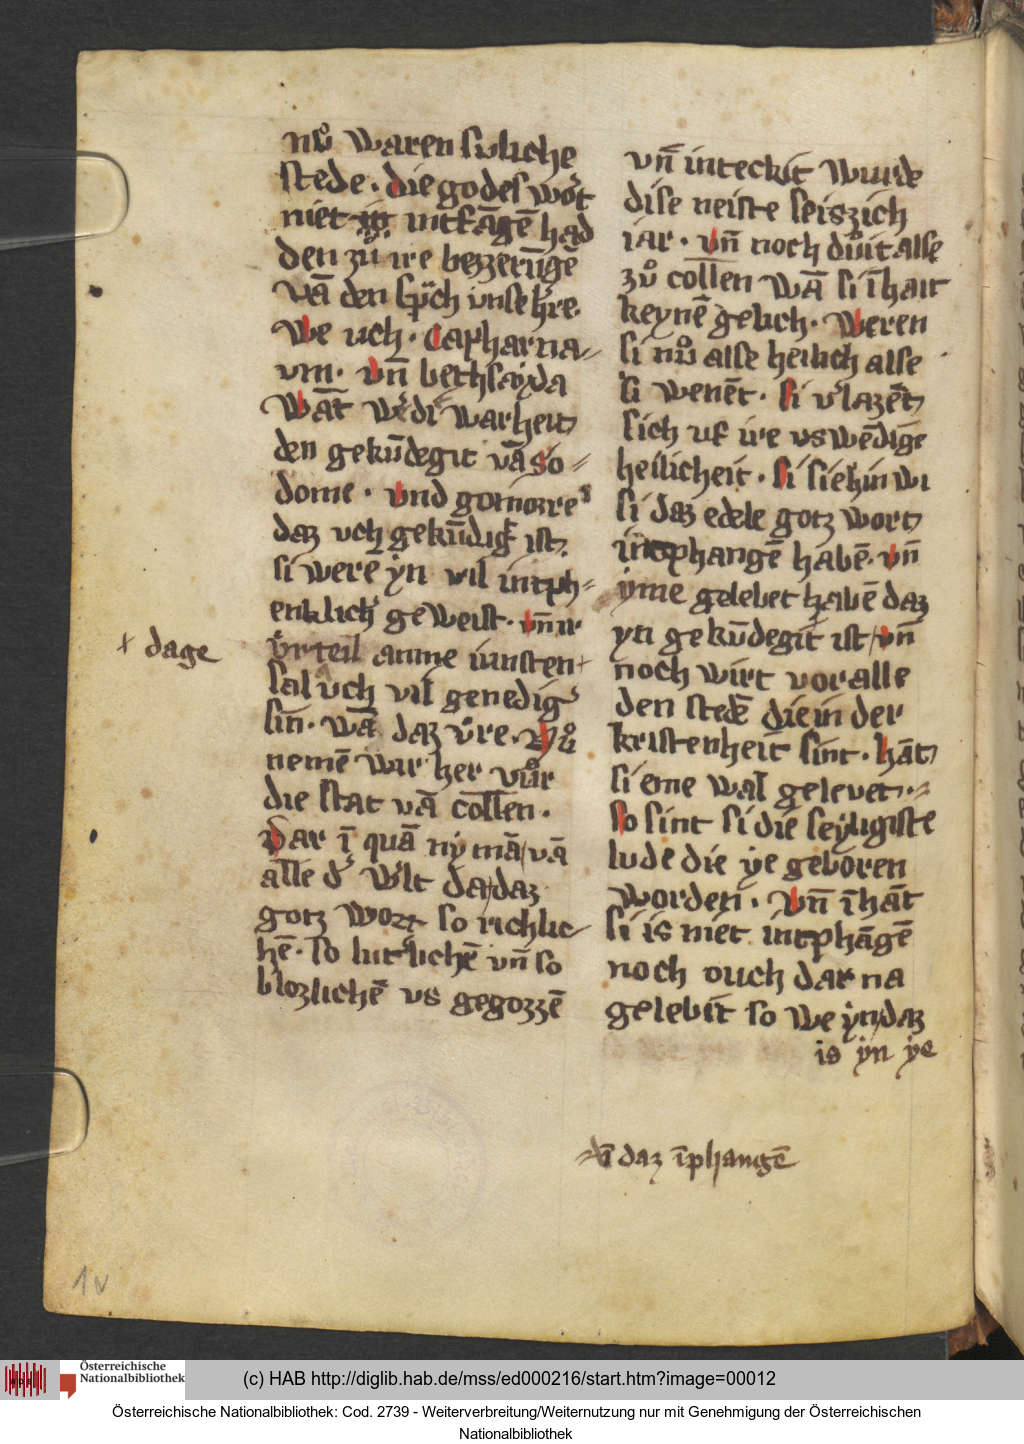 nuͦ waren suliche
stede. die godes wort
niet in intfāgē had
den zuͦ ire bezzerūgē
vā den sprich unse h're.
We uch. Capharna-
um. vn̄ bethsayda
Wāt w'di warheit
den gekūdegit vā so=
dome. vnd gomorre
daz uch gekūdig' ist.
si werē yn vil intph=
enklich' geweist. vn̄ ir
vrteil amme iunsten +
sal uch vil genedig'
sin. wā daz v̓re. Nuͦ
nemē war her vuͦr
die stat vā collen.
Dar ī quā ny mā/vā
alle d' w'lt da/daz
gotz wort so richlic
hē. so lut'lichē vn̄ so
blozlichē vs gegozzē
+ dage
vn̄ inteckit wurde
dise neiste seiszich
iar. vn̄ noch duͦit alse
zuͦ collen wā si ī hait
keynē gelich. Weren
si nuͦ alse heilich alse
si wenēt. si v'lazēt
sich uf ire uswēdige
heilicheit. si siehin wi
si daz edele gotz wort
intphangē habē. vn̄
yme gelebet habē daz
yn gekūdegit ist/vn̄
noch wirt vor alle
den stedē die in der
kristenheit sint. hāt
si eme wal gelevet.=
so sint si die seyligiste
lude die ye geboren
worden. vn̄ ī hāt
si is niet intphāgē
noch ouch dar na
gelebit so we yn/daz
is yn ye
daz īphangē
1v
Österreichische
Nationalbibliothek
(c) HAB http://diglib.hab.de/mss/ed000216/start.htm?image=00012
Österreichische Nationalbibliothek: Cod. 2739 - Weiterverbreitung/Weiternutzung nur mit Genehmigung der Österreichischen
Nationalbibliothek